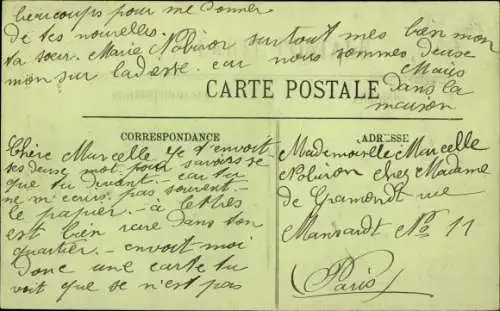 beaucoups pour me donner
de tes nouvelles.
ta soeur. Marie Nobiron surtout mes bien mon
mon sur ladesse. car nous sommes deuse
Mais
dans la
maison
CARTE POSTALE
CORRESPONDANCE
Chère Marcelle je t'envoit
tes deuse mot pour savoirs se
que tu devant. car tu
ne m'ecris pas souvent.
le papier. a lettres
est bien rare dans ton
quartier. envoit moi
donc une carte tu
voit que se n'est pas
ADRESSE
Mademoiselle Marcelle
Nobiron chez Madame
de Gramondt rue
Mansardt No 11
(Paris)